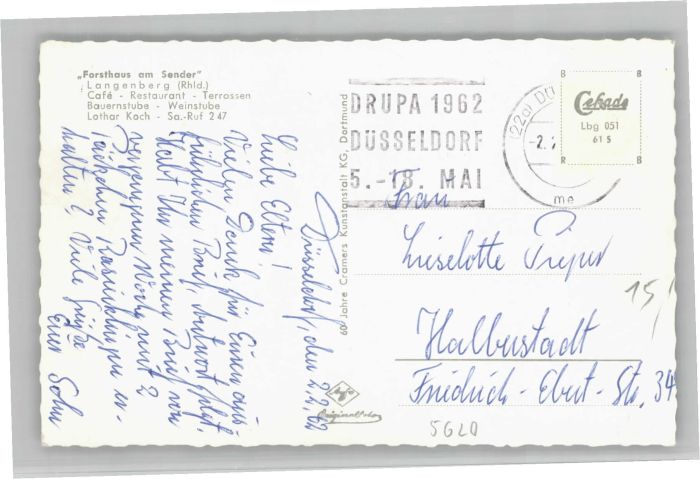 „Forsthaus am Sender"
Langenberg (Rhld.)
Café - Restaurant - Terrassen
Bauernstube - Weinstube
Lothar Koch - Sa.-Ruf 2 47
Düsseldorf, den 2.2.62
Liebe Eltern!
Vielen Dank für Euren aus-
führlichen Brief, Antwort folgt.
Habt Ihr meinen Brief von
voriger Woche mit 2
Päckchen Rasierklingen er-
halten? Viele Grüße
Euer Sohn
60 Jahre Cramers Kunstanstalt KG, Dortmund
DRUPA 1962
DÜSSELDORF
5.-18. MAI
(22a) DÜ
-2.
me
B B
Cekade
Lbg 051
61 S
R B
Frau
Lieselotte Pieper
Halberstadt
Friedrich-Ebert-Str. 34
15/
Originalfoto
5620